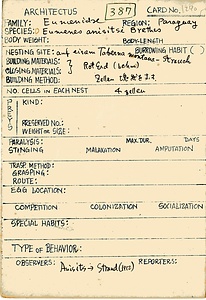 ARCHITECTUS 387 CARD No. 240
FAMILY: Eumenidae REGION: Paraguay
SPECIES: Eumenes anisitsi Brethes
BODY WEIGHT: BODY-LENGTH
NESTING SITE: auf einem Taberna montana-Strauch BURROWING HABIT ( )
BUILDING MATERIALS:
CLOSING MATERIALS: Rot Erd (Lehm)
BUILDING METHOD: Zellen
NO. CELLS IN EACH NEST 4 Zellen
PREYS KIND:
PRESERVED NO.:
WEIGHT OR SIZE:
PARALYSIS: MAX. DUR. DAYS
STINGING MALAXATION AMPUTATION
TRASP. METHOD:
GRASPING:
ROUTE:
EGG LOCATION:
COMPETITION COLONIZATION SOCIALIZATION
SPECIAL HABITS:
TYPE OF BEHAVIOR:
OBSERVERS: REPORTERS:
Anisits → Strand